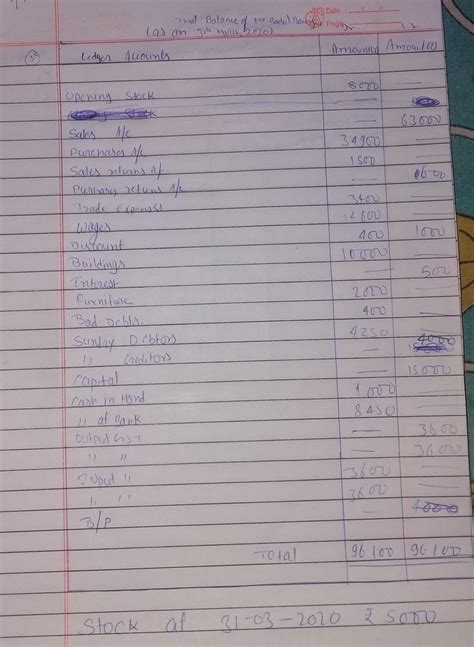 Trial Balance of Mr Badal
Date : / /
Page
(as on 31st March, 2020)
(5) Ledger Accounts Amount(₹) Amount(₹)
Opening Stock 8000 —
Sales A/c — 63000
Purchases A/c 34900 —
Sales returns A/c 1500 —
Purchases returns A/c —
Trade Expenses 3400 —
Wages —
Discount 400 1000
Buildings 10000 —
Interest — 500
Furniture 2000 —
Bad Debts. 400 —
Sundry Debtors 4250 —
" Creditors —
Capital — 15000
Cash in Hand 1000 —
" at Bank 8450 —
Output — 3600
" " — 3600
Input " 3600 —
" " 3600 —
B/P — 4000
Total 96100 96100
Stock at 31-03-2020 ₹ 5000